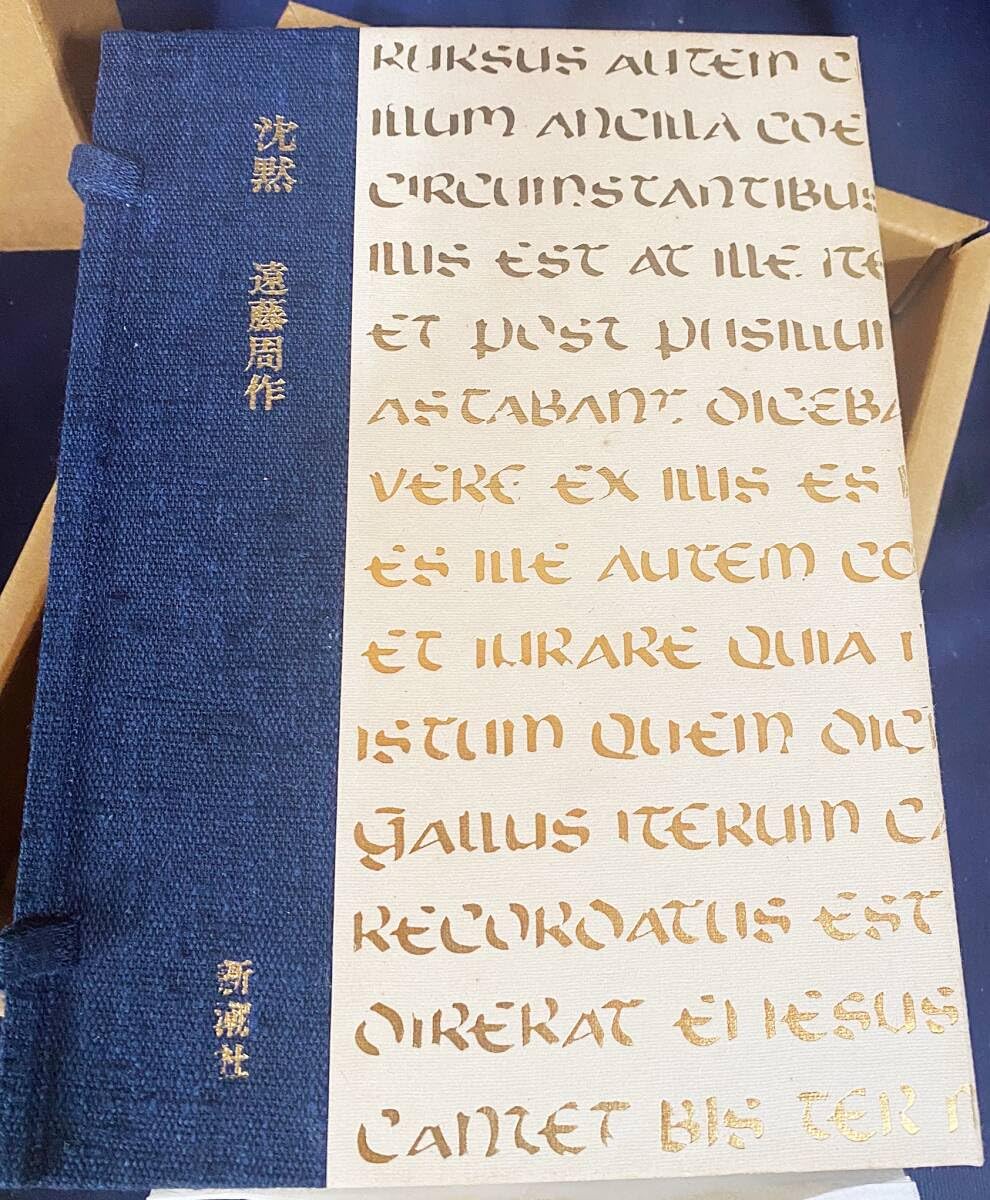 沈黙
遠藤周作
新潮社
RURSUS AUTEM C
ILLUM ANCILLA COE
CIRCUMSTANTIBUS
ILLIS EST AT ILLE ITE
ET POST PUSILLUM
ASTABANT DICEBA
VERE EX ILLIS ES
ES ILLE AUTEM CO
ET IURARE QUIA
ISTUM QUEM DICI
GALLUS ITERUM CA
RECORDATUS EST
DIXERAT EI IESUS
CANTET BIS TER N